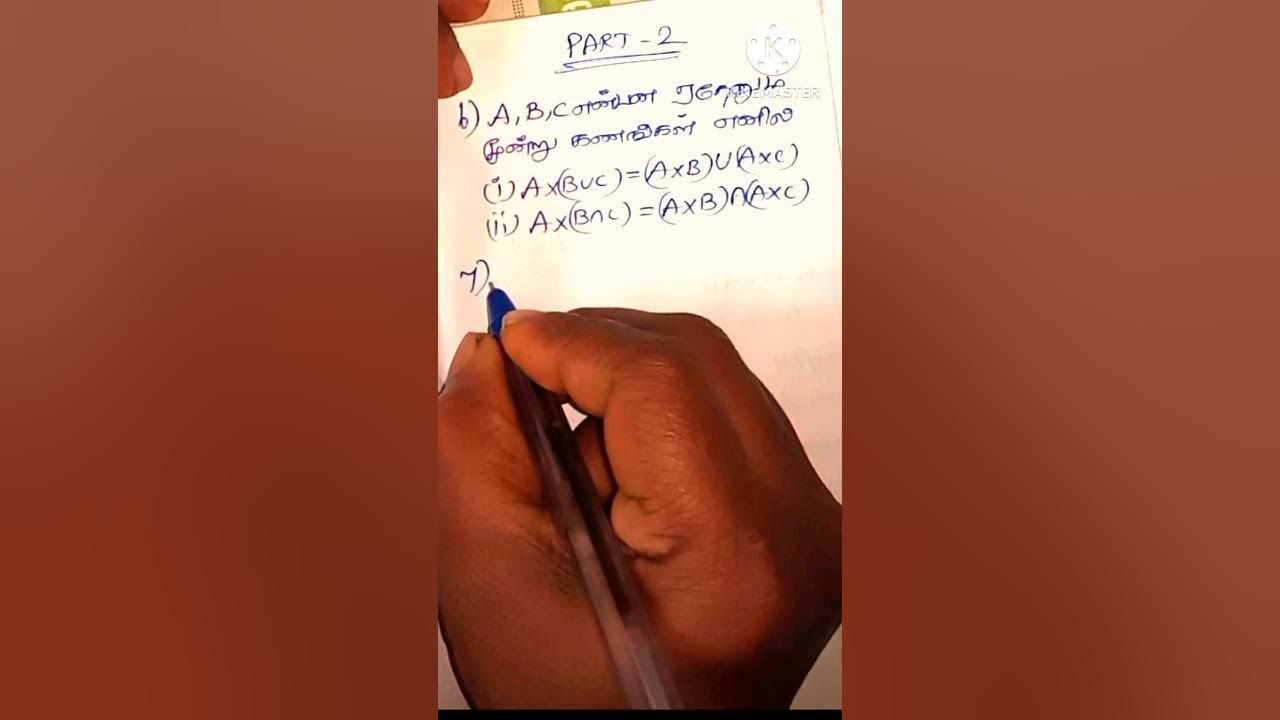 PART-2
6) A, B, C என்பன ஏதேனும்
மூன்று கணங்கள் எனில்
(i) A×(B∪C)=(A×B)∪(A×C)
(ii) A×(B∩C)=(A×B)∩(A×C)
7)
K